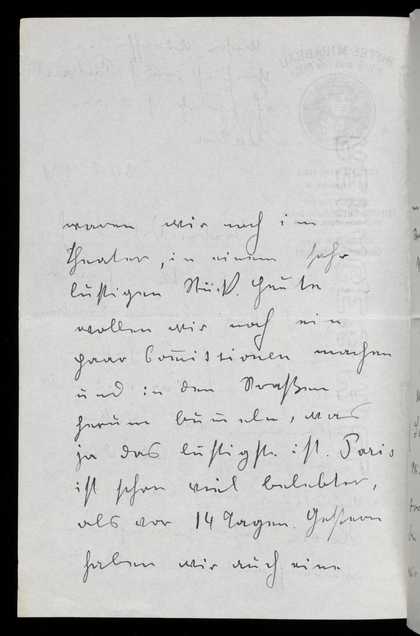 waren wir noch im
Theater, in einem sehr
lustigen Stück. Heute
wollen wir noch ein
paar Com̅issionen machen
und in den Straßen
herum bum̅eln, was
ja das lustigste ist. Paris
ist schon viel belebter,
als vor 14 Tagen. Gestern
haben wir auch eine